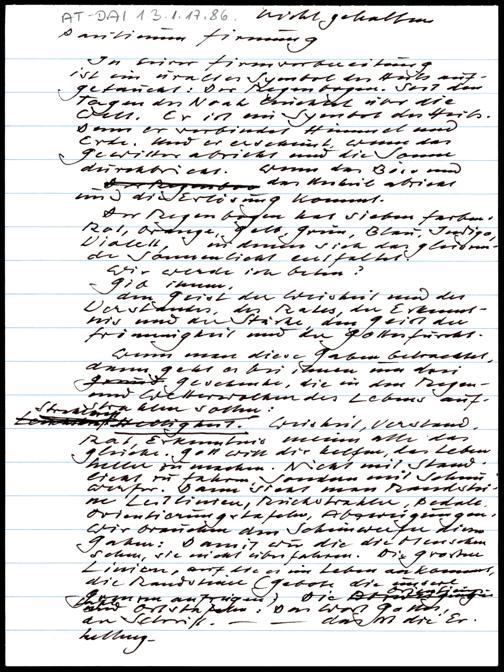 AT-DAI 13.1.17.86. Nicht gehalten
Sanktissimum Firmung
In einer Firmvorbereitung
ist ein uraltes Symbol des Heils auf-
getaucht: Der Regenbogen. Seit den
Tagen des Noah über die
Welt. Er ist ein Symbol des Heils.
Denn er verbindet Himmel und
Erde. Und er erscheint, wenn das
Gewitter abzieht und die Sonne
durchbricht. Wenn das Böse und
Der Regenbogen das Unheil abzieht
und die Erlösung kommt.
Der Regenbogen hat sieben Farben.
Rot, Orange, Gelb, Grün, Blau, Indigo,
Violett, in denen sich das gleißen-
de Sonnenlicht entfaltet.
Wir werde ich beten?
Gib ihnen,
den Geist der Weisheit und des
Verstandes, des Rates, der Erkennt-
nis und der Stärke, den Geist der
Frömmigkeit und der Gottesfurcht.
Wenn man diese Gaben betrachtet,
dann geht es bei ihnen um drei
Geschenke, die in den Regen-
und Wetterwolken des Lebens auf-
strahlen sollen:
Helligkeit. Weisheit, Verstand,
Rat, Erkenntnis meinen alle das
gleiche. Gott will dir helfen, das Leben
heller zu machen. Nicht mit Stand-
licht zu fahren, sondern mit Schein-
werfer. Dann sieht man Randstei-
ne Leitlinien, Rückstrahler,
Orientierungstafeln, Abzweigungen.
Wir brauchen den Scheinwerfer dieser
Gaben: Damit wir die Menschen
sehen, sie nicht überfahren. Die großen
Linien, auf die es im Leben ankommt,
die Randsteine (Gebote die unsere
Grenzen) Die
und Ortstafeln: Das Wort Gottes,
der Schrift. — — das ist die Er-
hellung.